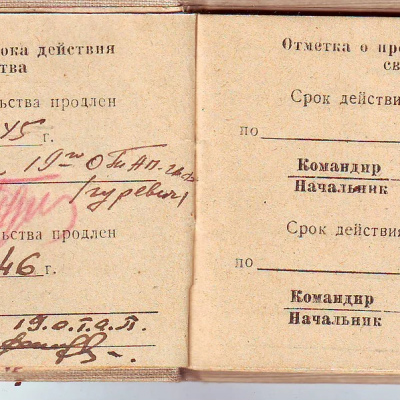 ока действия
тва
ьства продлен
45 г.
19го
Гуревич
ьства продлен
46 г.
19.о.т.а.п.
Отметка о пр
св
Срок действи
по
Командир
Начальник
Срок действия
по
Командир
Начальник